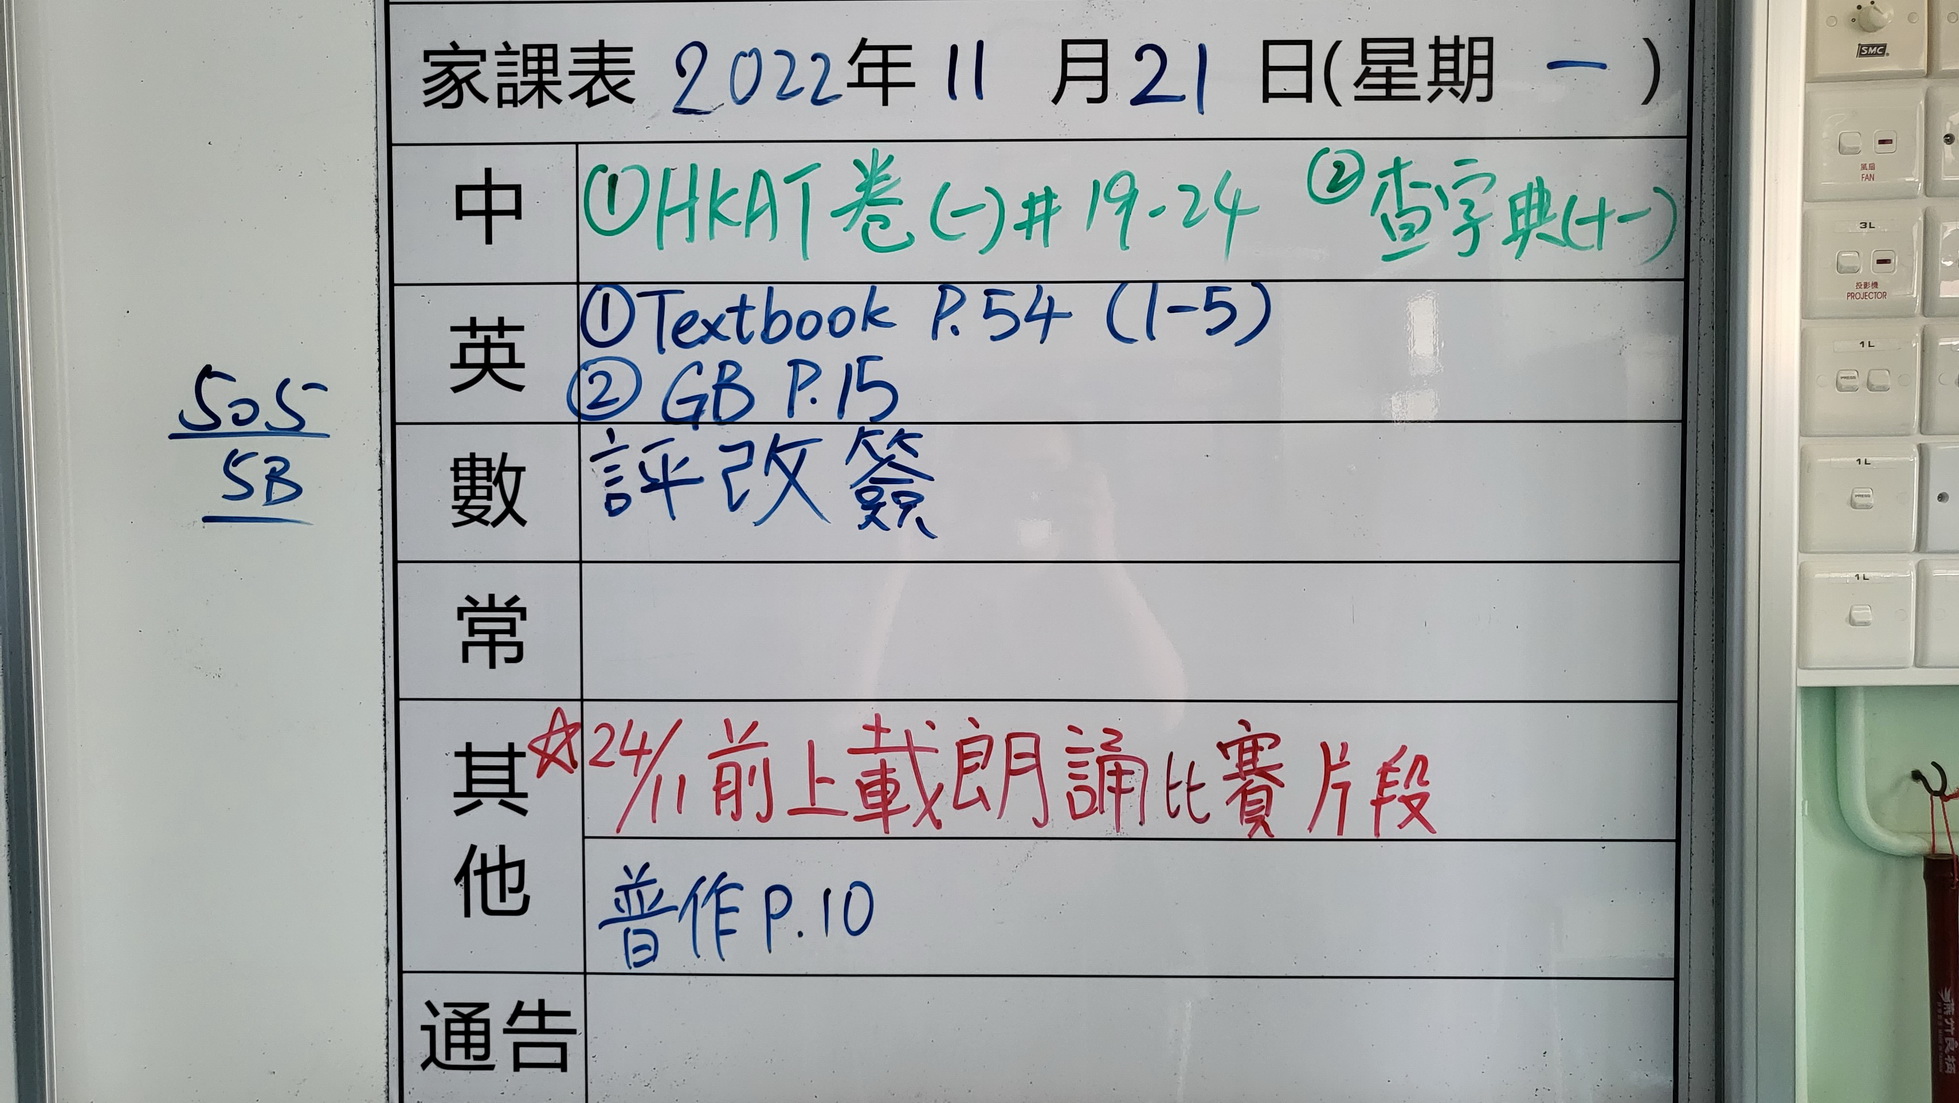 家課表 2022年 11 月 21 日(星期 一 )
中 ①HKAT 卷(一)# 19-24 ②查字典(十一)
英 ①Textbook P.54 (1-5)
② GB P.15
505
5B
數 評改簽
常
其他 ☆24/11前上載朗誦比賽片段
普作 P.10
通告
SMC
氣扇
FAN
3L
投影機
PROJECTOR
1L
1L
1L